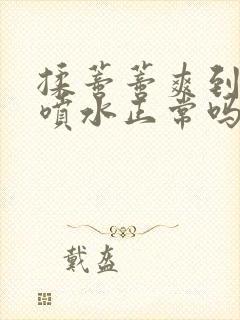 揉萻萻爽到
喷水正常吗
戴盔